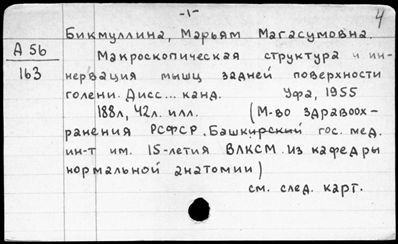 -1-
4
Бикмуллина, Марьям Магасумовна.
А 56
163
Макроскопическая структура и ин-
нервация мышц задней поверхности
голени. Дисс... канд. Уфа, 1955
188л, 42л. илл. (М-во здравоох-
ранения РСФСР. Башкирский гос. мед.
ин-т им. 15-летия ВЛКСМ. Из кафедры
нормальной анатомии)
см. след. карт.